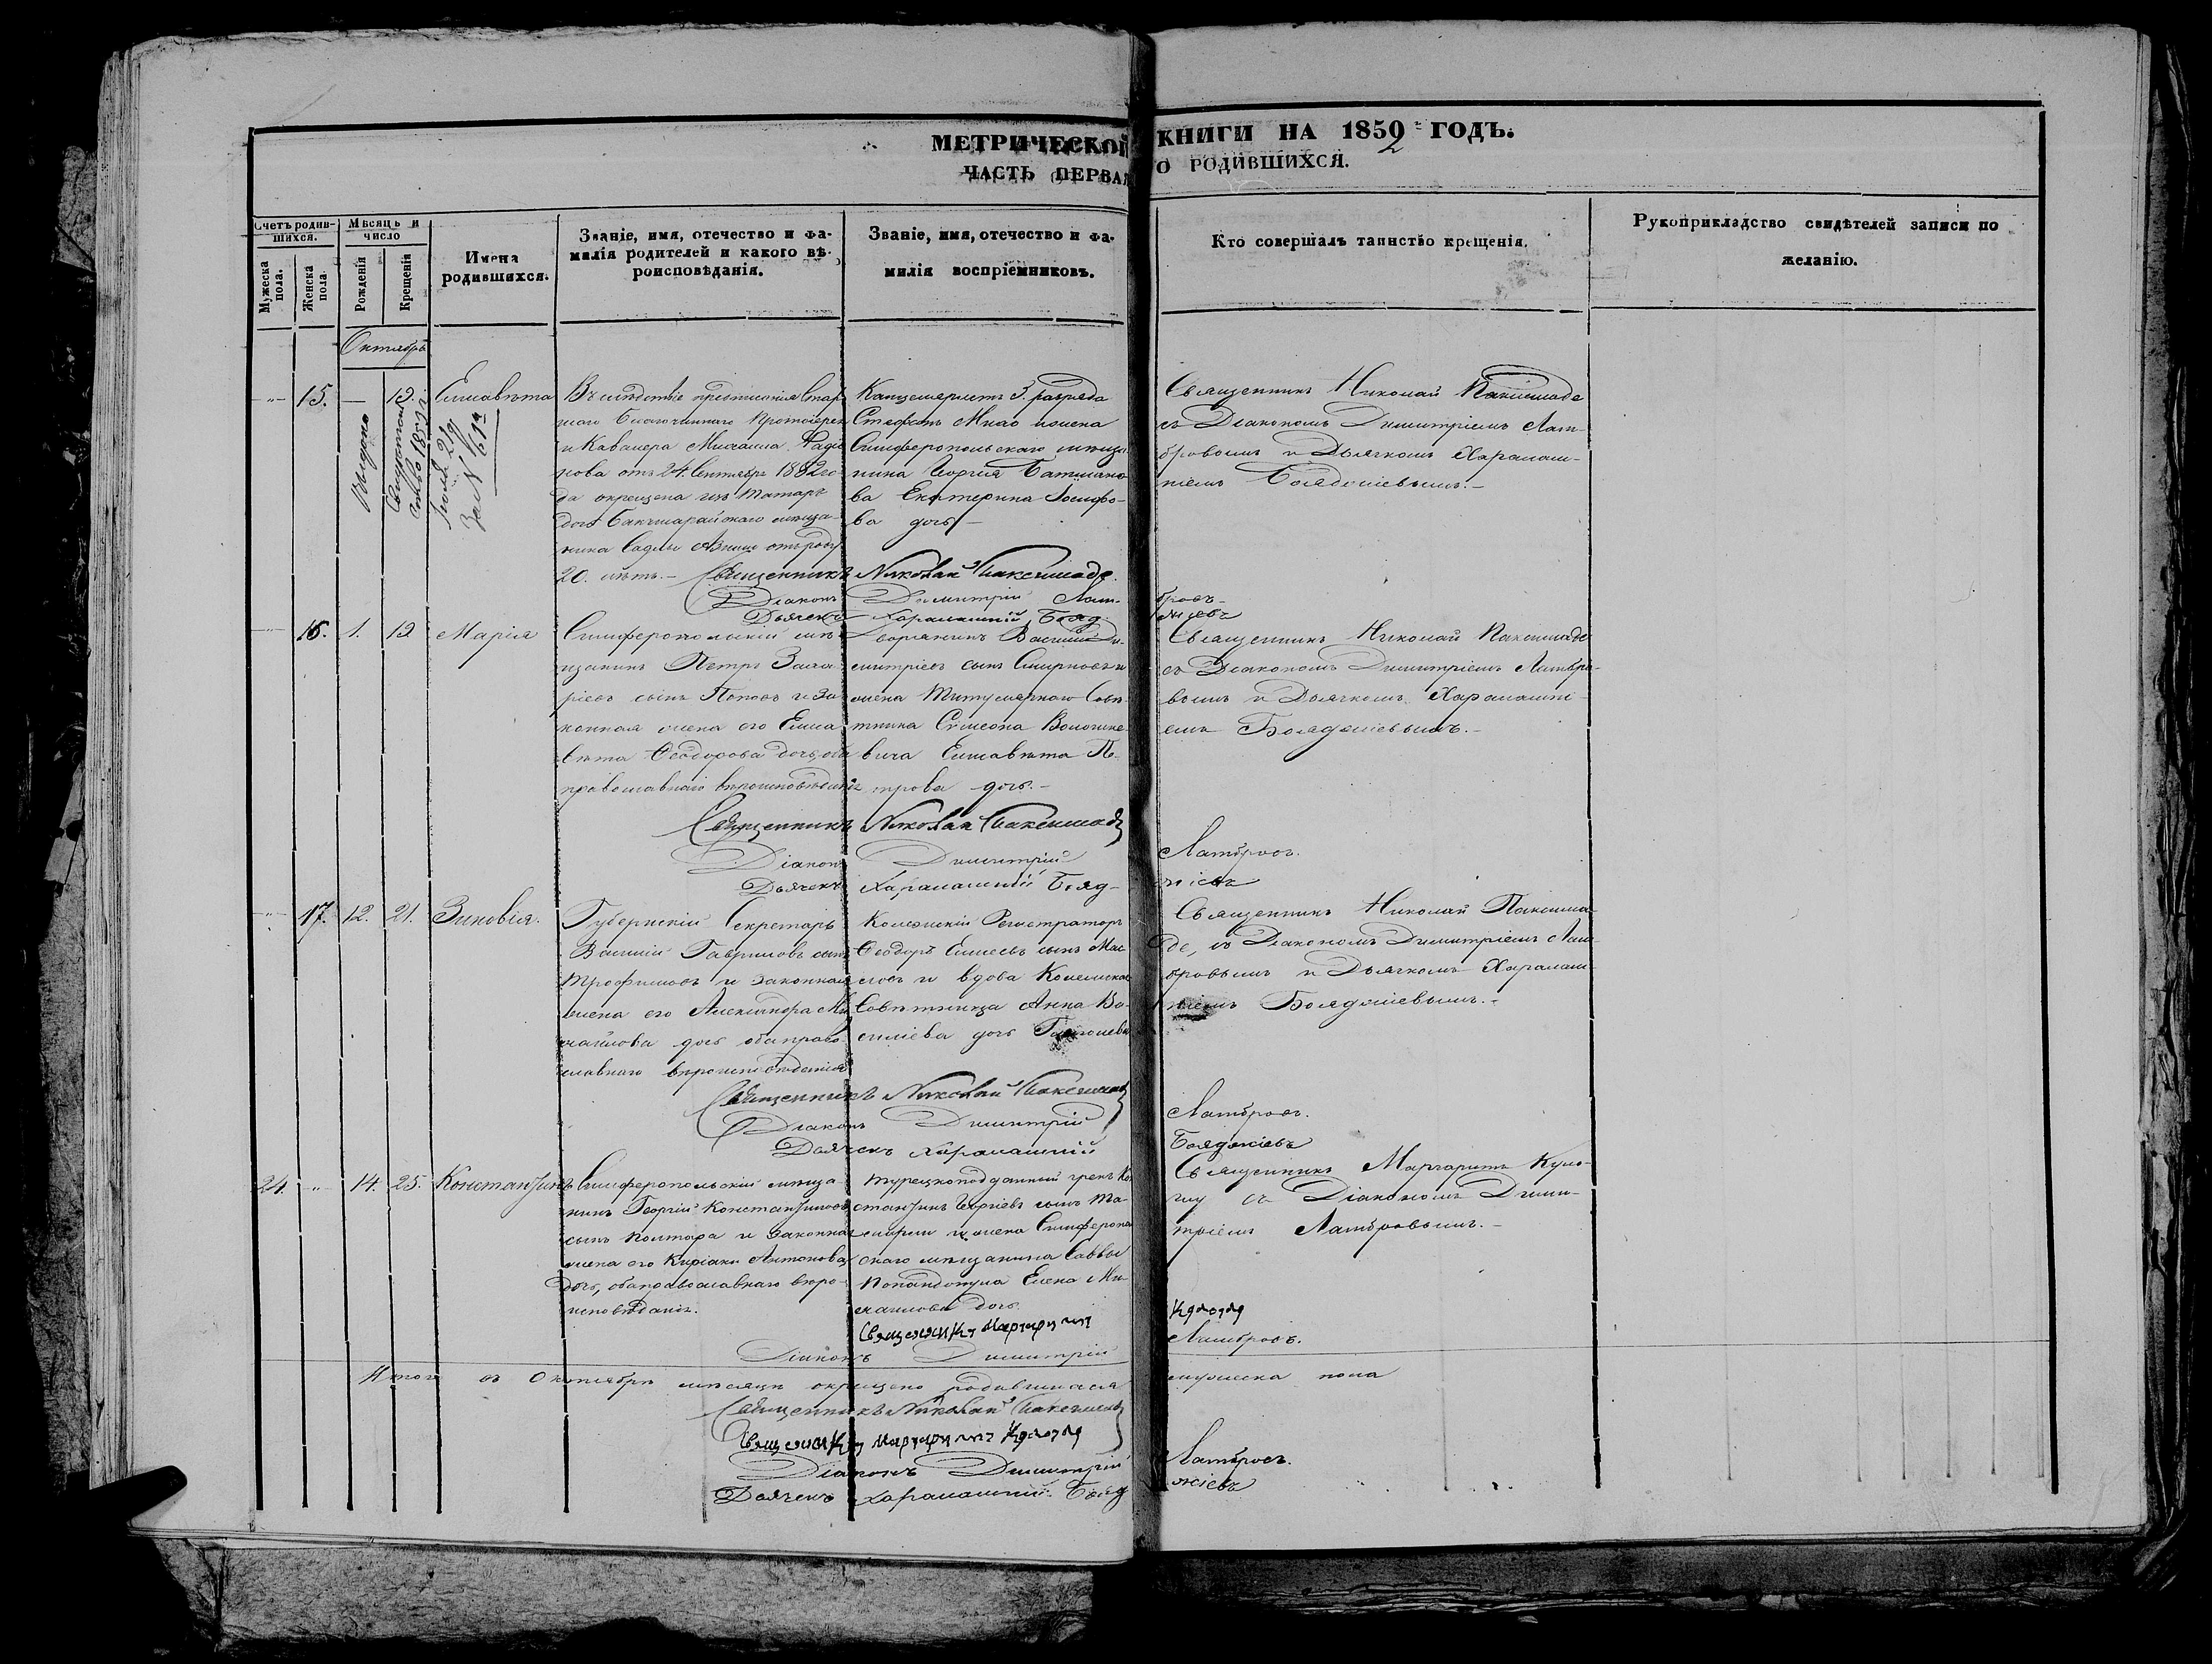 МЕТРИЧЕСКОЙ КНИГИ НА 1852 ГОДЪ.
ЧАСТЬ ПЕРВАЯ О РОДИВШИХСЯ.
Счетъ родившихся.
Мужеска пола.
Женска пола.
Мѣсяцъ и число
Рожденія
Крещенія
Имена
родившихся.
Званіе, имя, отечество и фа-
милія родителей и какого вѣ-
роисповѣданія.
Званіе, имя, отечество и фа-
милія воспріемниковъ.
Кто совершалъ таинство крещенія.
Рукоприкладство свидѣтелей записи по
желанію.
Октябрь
15.
Елисавета
Выдано
Свидетель
ство 1859 г
Іюля 21 д
за № 61
Вслѣдствіе предписанія Стар
шаго Благочиннаго Протоіерея
и Кавалера Михаила
нова отъ 24 Сентября 1852 го-
да окрещена изъ татаръ
дочь Бакчисарайскаго мѣща-
нина отъ роду
20. лѣтъ.-
Канцеляристъ 3. разряда
Стефанъ жена
Симферопольскаго мѣща
нина Георгія
ва Екатерина Іосифо-
ва дочь
Священникъ Николай Паксимаде
съ Діакономъ Димитріемъ Лам-
бровымъ и Дьячкомъ Харалам-
піемъ Бояджіевымъ.-
Священникъ Николай Паксимаде.
Діаконъ Димитрій Лам-
бровъ-
Дьячекъ Харалампій Бояд-
жіевъ
16. 1. Марія
Симферопольскій мѣ-
щанинъ Петръ Заха
ріевъ сынъ Поповъ и за
конная жена его Елиса
вета Ѳеодорова дочь, оба
православнаго вѣроисповѣданія
Дворянинъ Василій Ди-
митріевъ сынъ Смирновъ и
жена Титулярнаго Совѣ
тника Симеона
вича Елисавета Пе-
трова дочь.-
Священникъ Николай Паксимаде
съ Діакономъ Димитріемъ Ламбро-
вымъ и Дьячкомъ Харалампі-
емъ Бояджіевымъ.-
Священникъ Николай Паксимаде
Діаконъ Димитрій Ламбровъ.
Дьячекъ Харалампій Бояд-
жіевъ
17. 12. 21. Зиновія.
Губернскій Секретарь
Василій Гавриловъ сынъ
Трофимовъ и законная
жена его Александра Ми
хайлова дочь оба право-
славнаго вѣроисповѣданія
Колежскій Регистраторъ
Ѳеодоръ Елисеевъ сынъ Мас
ловъ и вдова Колежская
Совѣтница Анна Ва-
силіева дочь
Священникъ Николай Паксима-
де, съ Діакономъ Димитріемъ Лам-
бровымъ и Дьячкомъ Харалам-
піемъ Бояджіевымъ.-
Священникъ Николай Паксимаде
Діаконъ Димитрій Ламбровъ.
Дьячекъ Харалампій Бояджіевъ
24. 14. 25. Константинъ
Симферопольскій мѣща-
нинъ Георгій Константиновъ
сынъ и законная
жена его Киріаки Антонова
дочь, оба православнаго вѣро-
исповѣданія.
Турецкоподданный грекъ Кон
стантинъ Георгіевъ сынъ
и жена Симферополь
скаго мѣщанина Саввы
Елена Ми-
хаилова дочь.
Священникъ Маргаритъ
съ Діакономъ Дими-
тріемъ Ламбровымъ.-
Священникъ Маргаритъ
Діаконъ Димитрій Ламбровъ.
Итого въ Октябрѣ мѣсяцѣ окрещено родившихся мужеска пола
Священникъ Николай Паксимаде
Священникъ Маргаритъ
Діаконъ Димитрій Ламбровъ.
Дьячекъ Харалампій Бояд
жіевъ